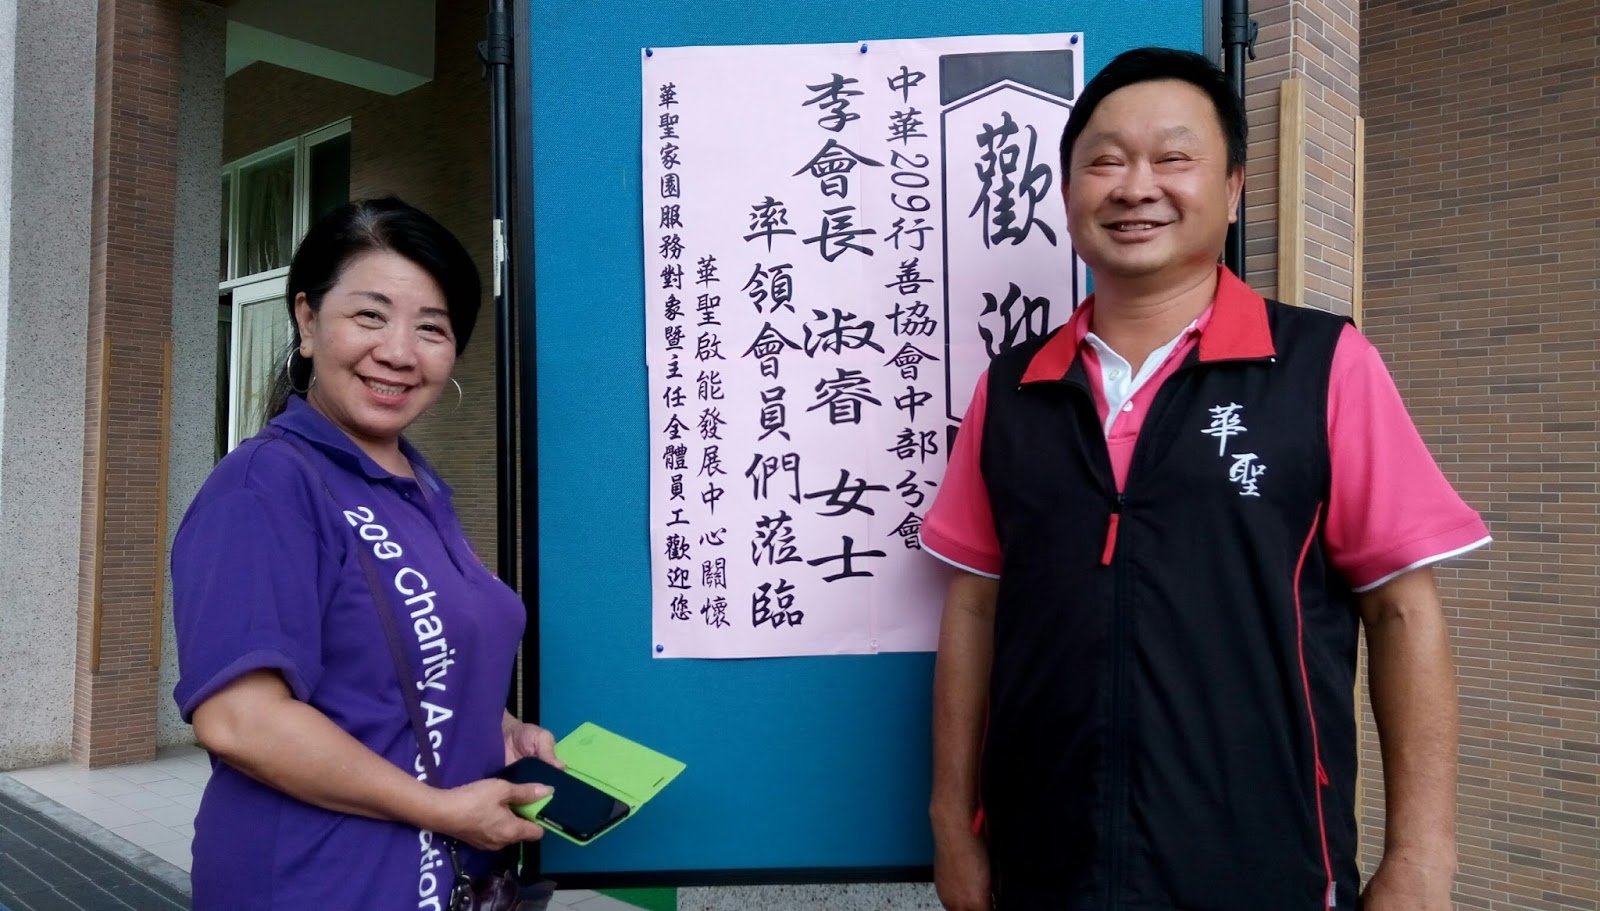 歡迎
中華209行善協會中部分會
李會長 淑睿 女士
率領會員們蒞臨
華聖啟能發展中心關懷
華聖家園服務對象暨主任全體員工歡迎您
209 Charity Association
華聖